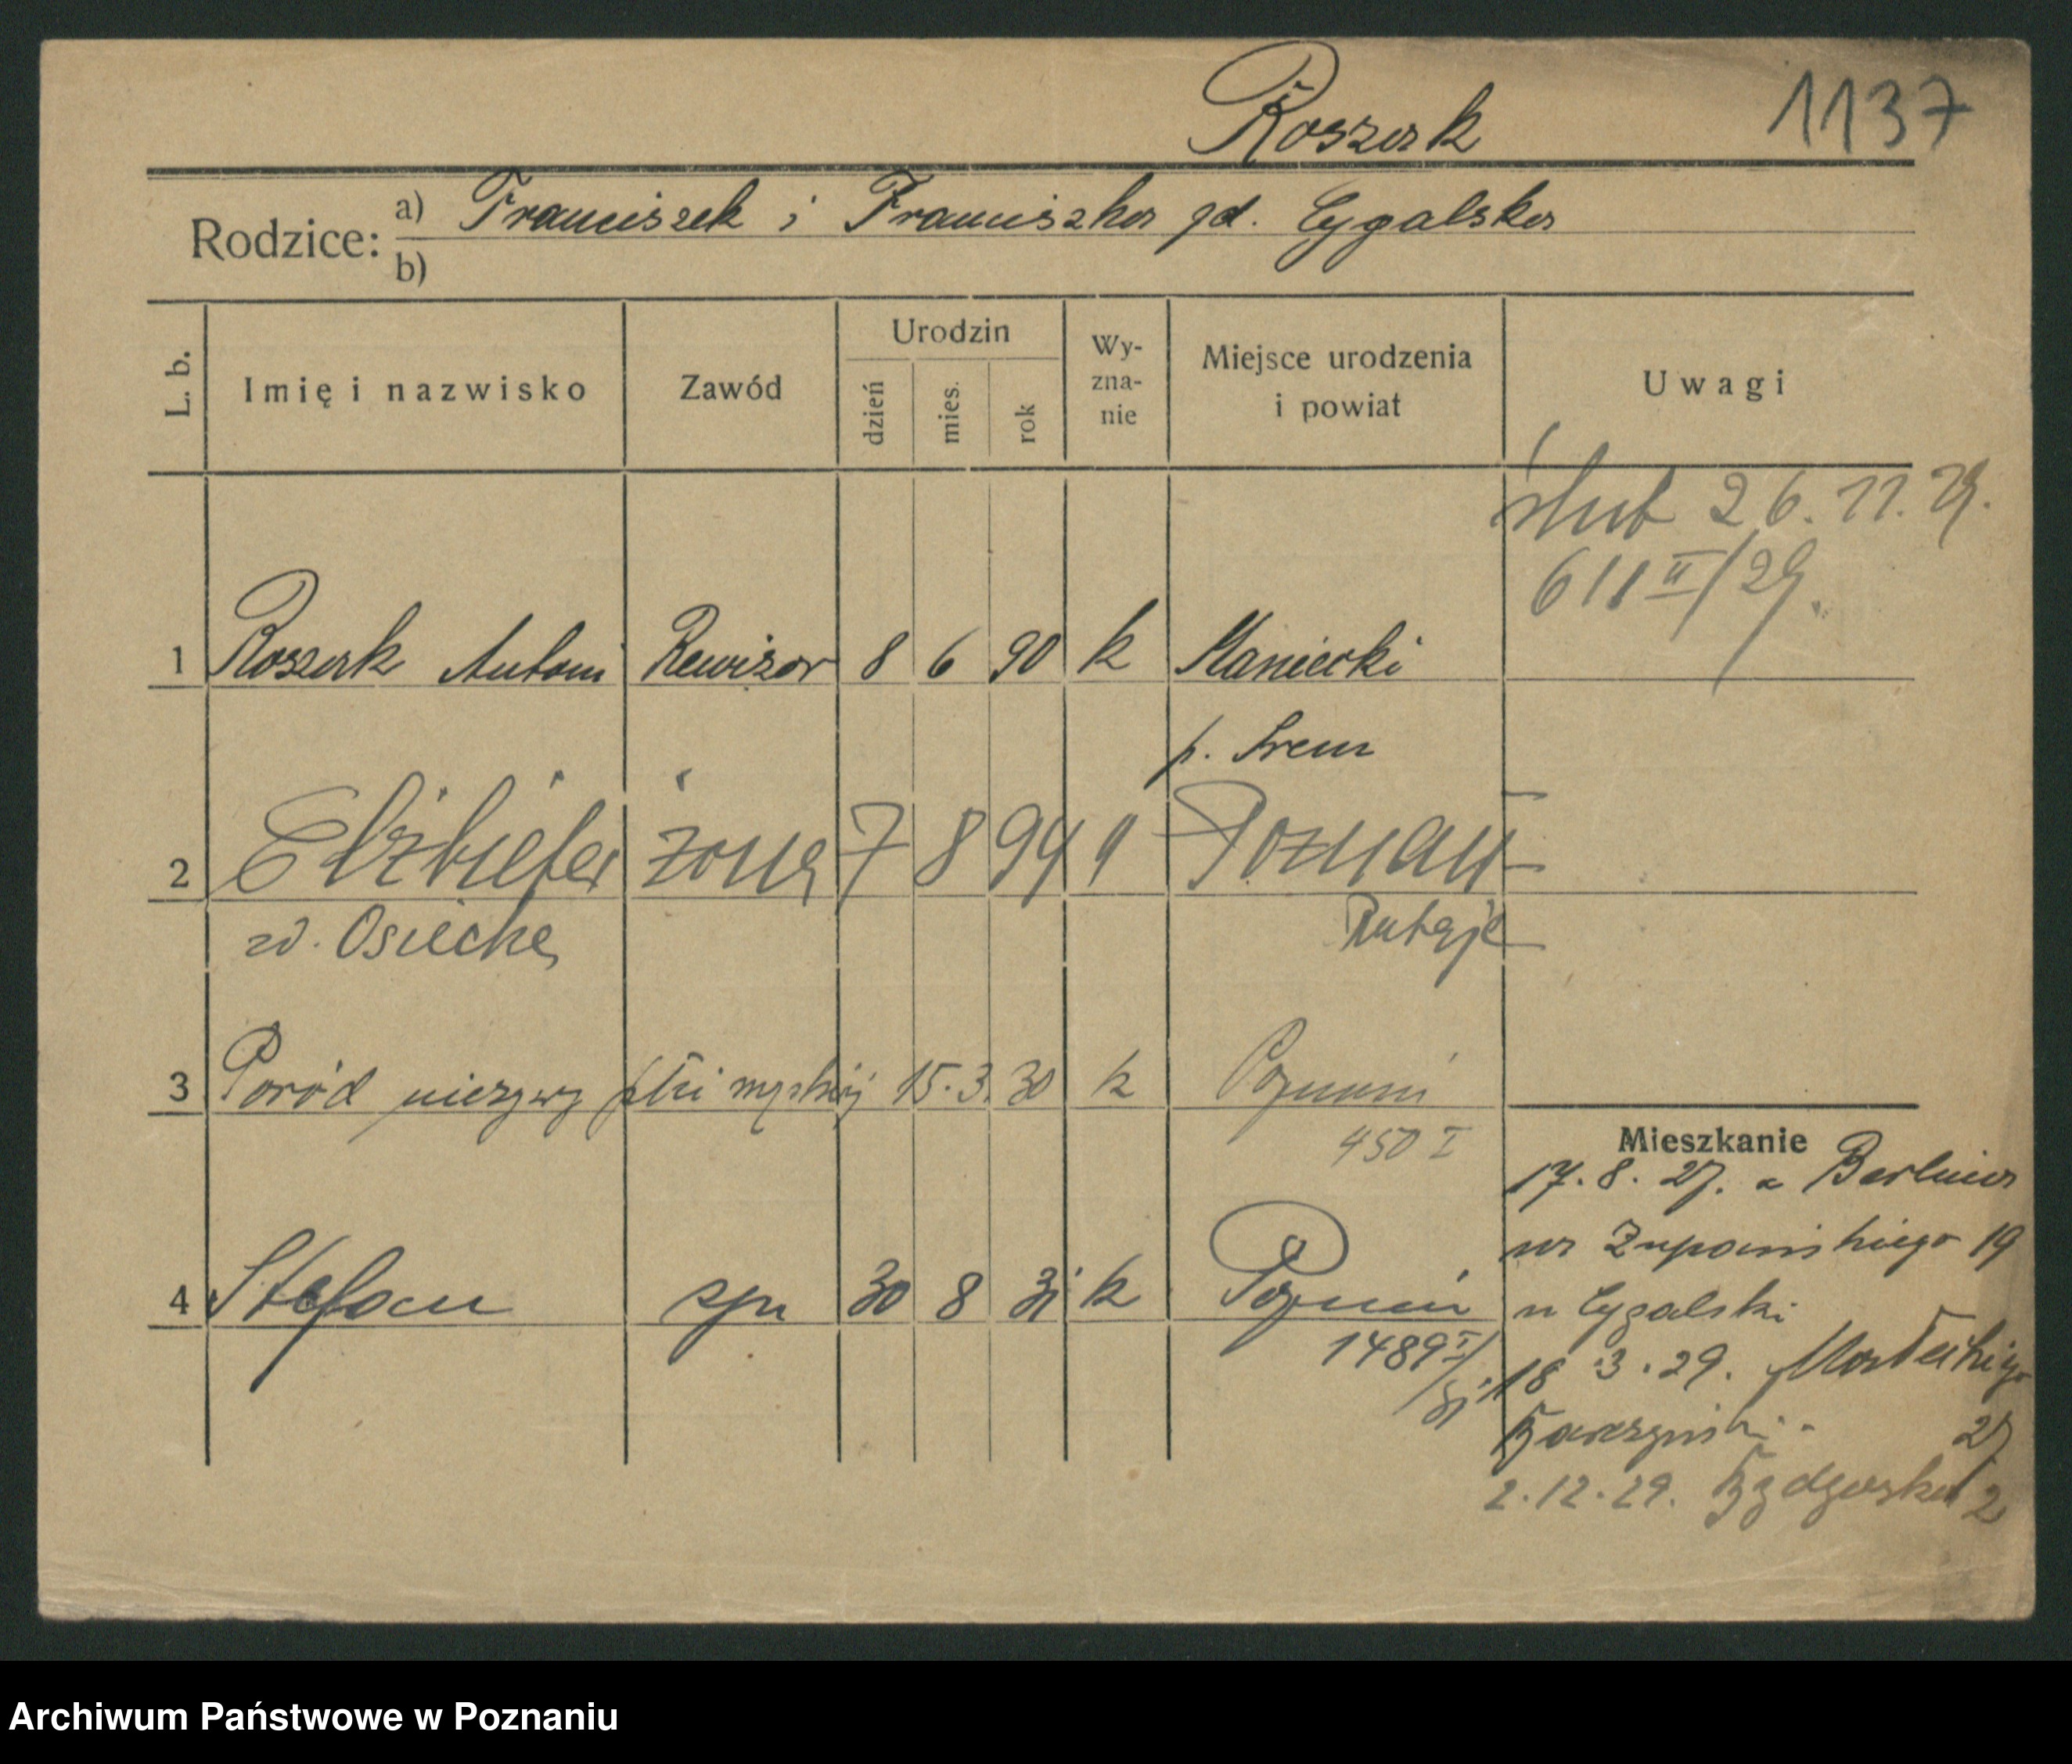 Roszak 1137
Rodzice: a) Franciszek i Franciszka zd. Cygalska
b)
L. b. Imię i nazwisko Zawód Urodzin dzień mies. rok Wy-zna-nie Miejsce urodzenia i powiat Uwagi
ślub 26.11.29.
611 II/29.
1 Roszak Antoni Rewizor 8 6 90 k Maniecki
p. Srem
2 Elżbieta żona 7 8 94 " Poznań
zd. Osiecka Rataje
3 Poród nieżywy płci męskiej 15.3.30 k Poznań
450 I
Mieszkanie
17.8.27. z Berlina
na Zupańskiego 19
4 Stefan syn 30 8 31 k Poznań
u Cygalski
1489 I/31
18.3.29. Masztalarska
27
2.12.29. Bydgoska 2